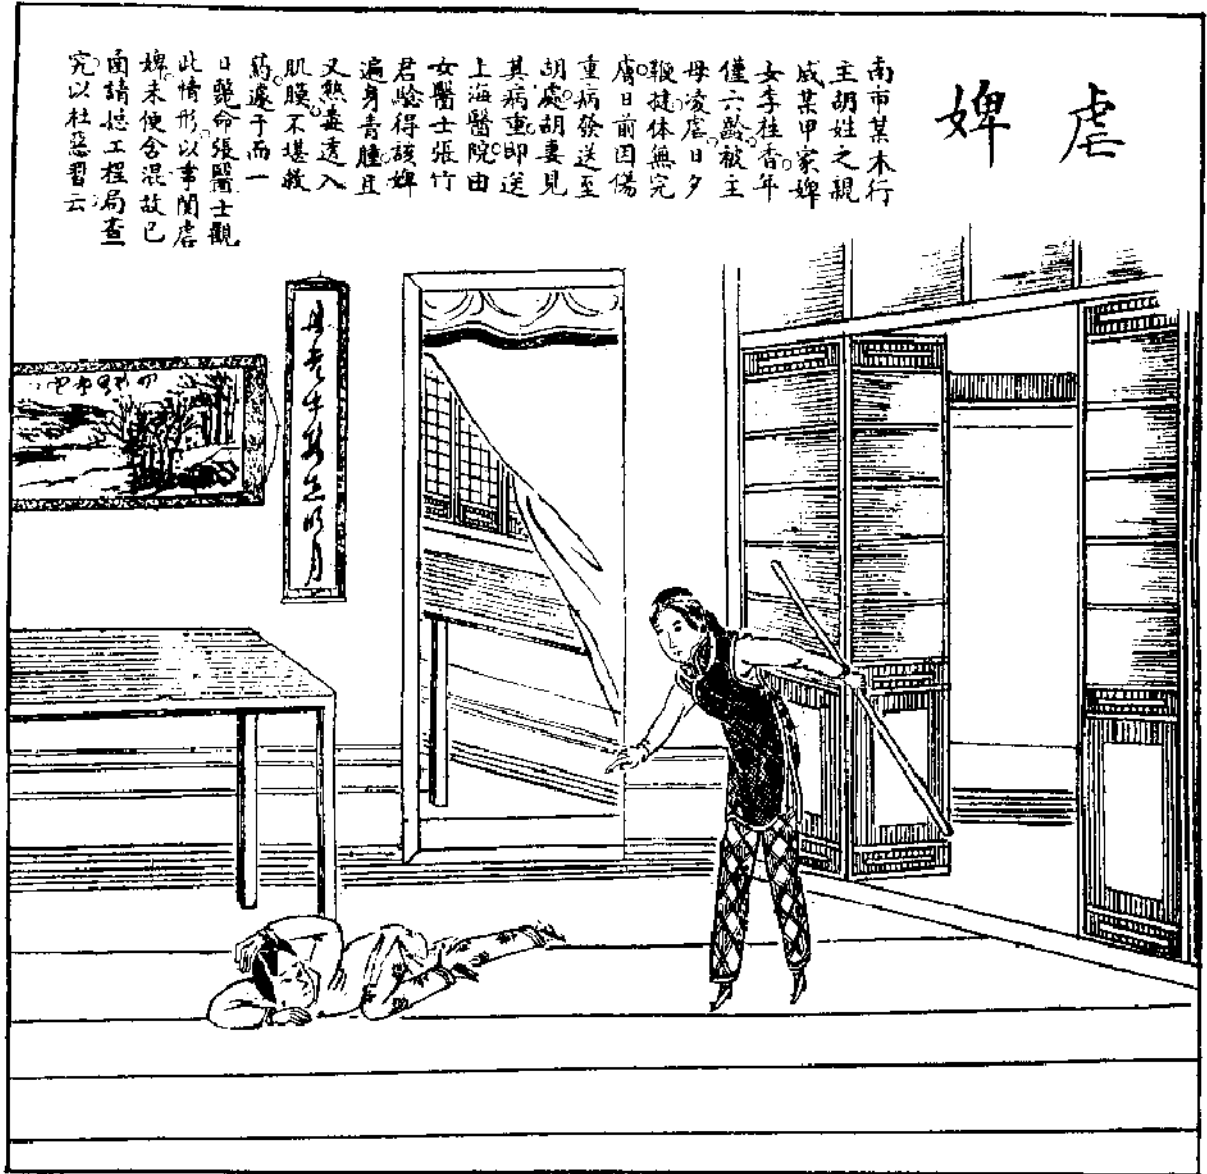 虐婢
南市某木行
主胡姓之親
戚某甲家婢
女李桂香年
僅六齡被主
母凌虐日夕
鞭撻体無完
膚日前因傷
重病發送至
胡處胡妻見
其病重即送
上海醫院由
女醫士張竹
君驗得該婢
遍身青腫且
又熱毒透入
肌膜不堪救
葯遂于前一
日斃命張醫士觀
此情形以事関虐
婢未便含混故已
函請総工程局查
究以杜惡習云